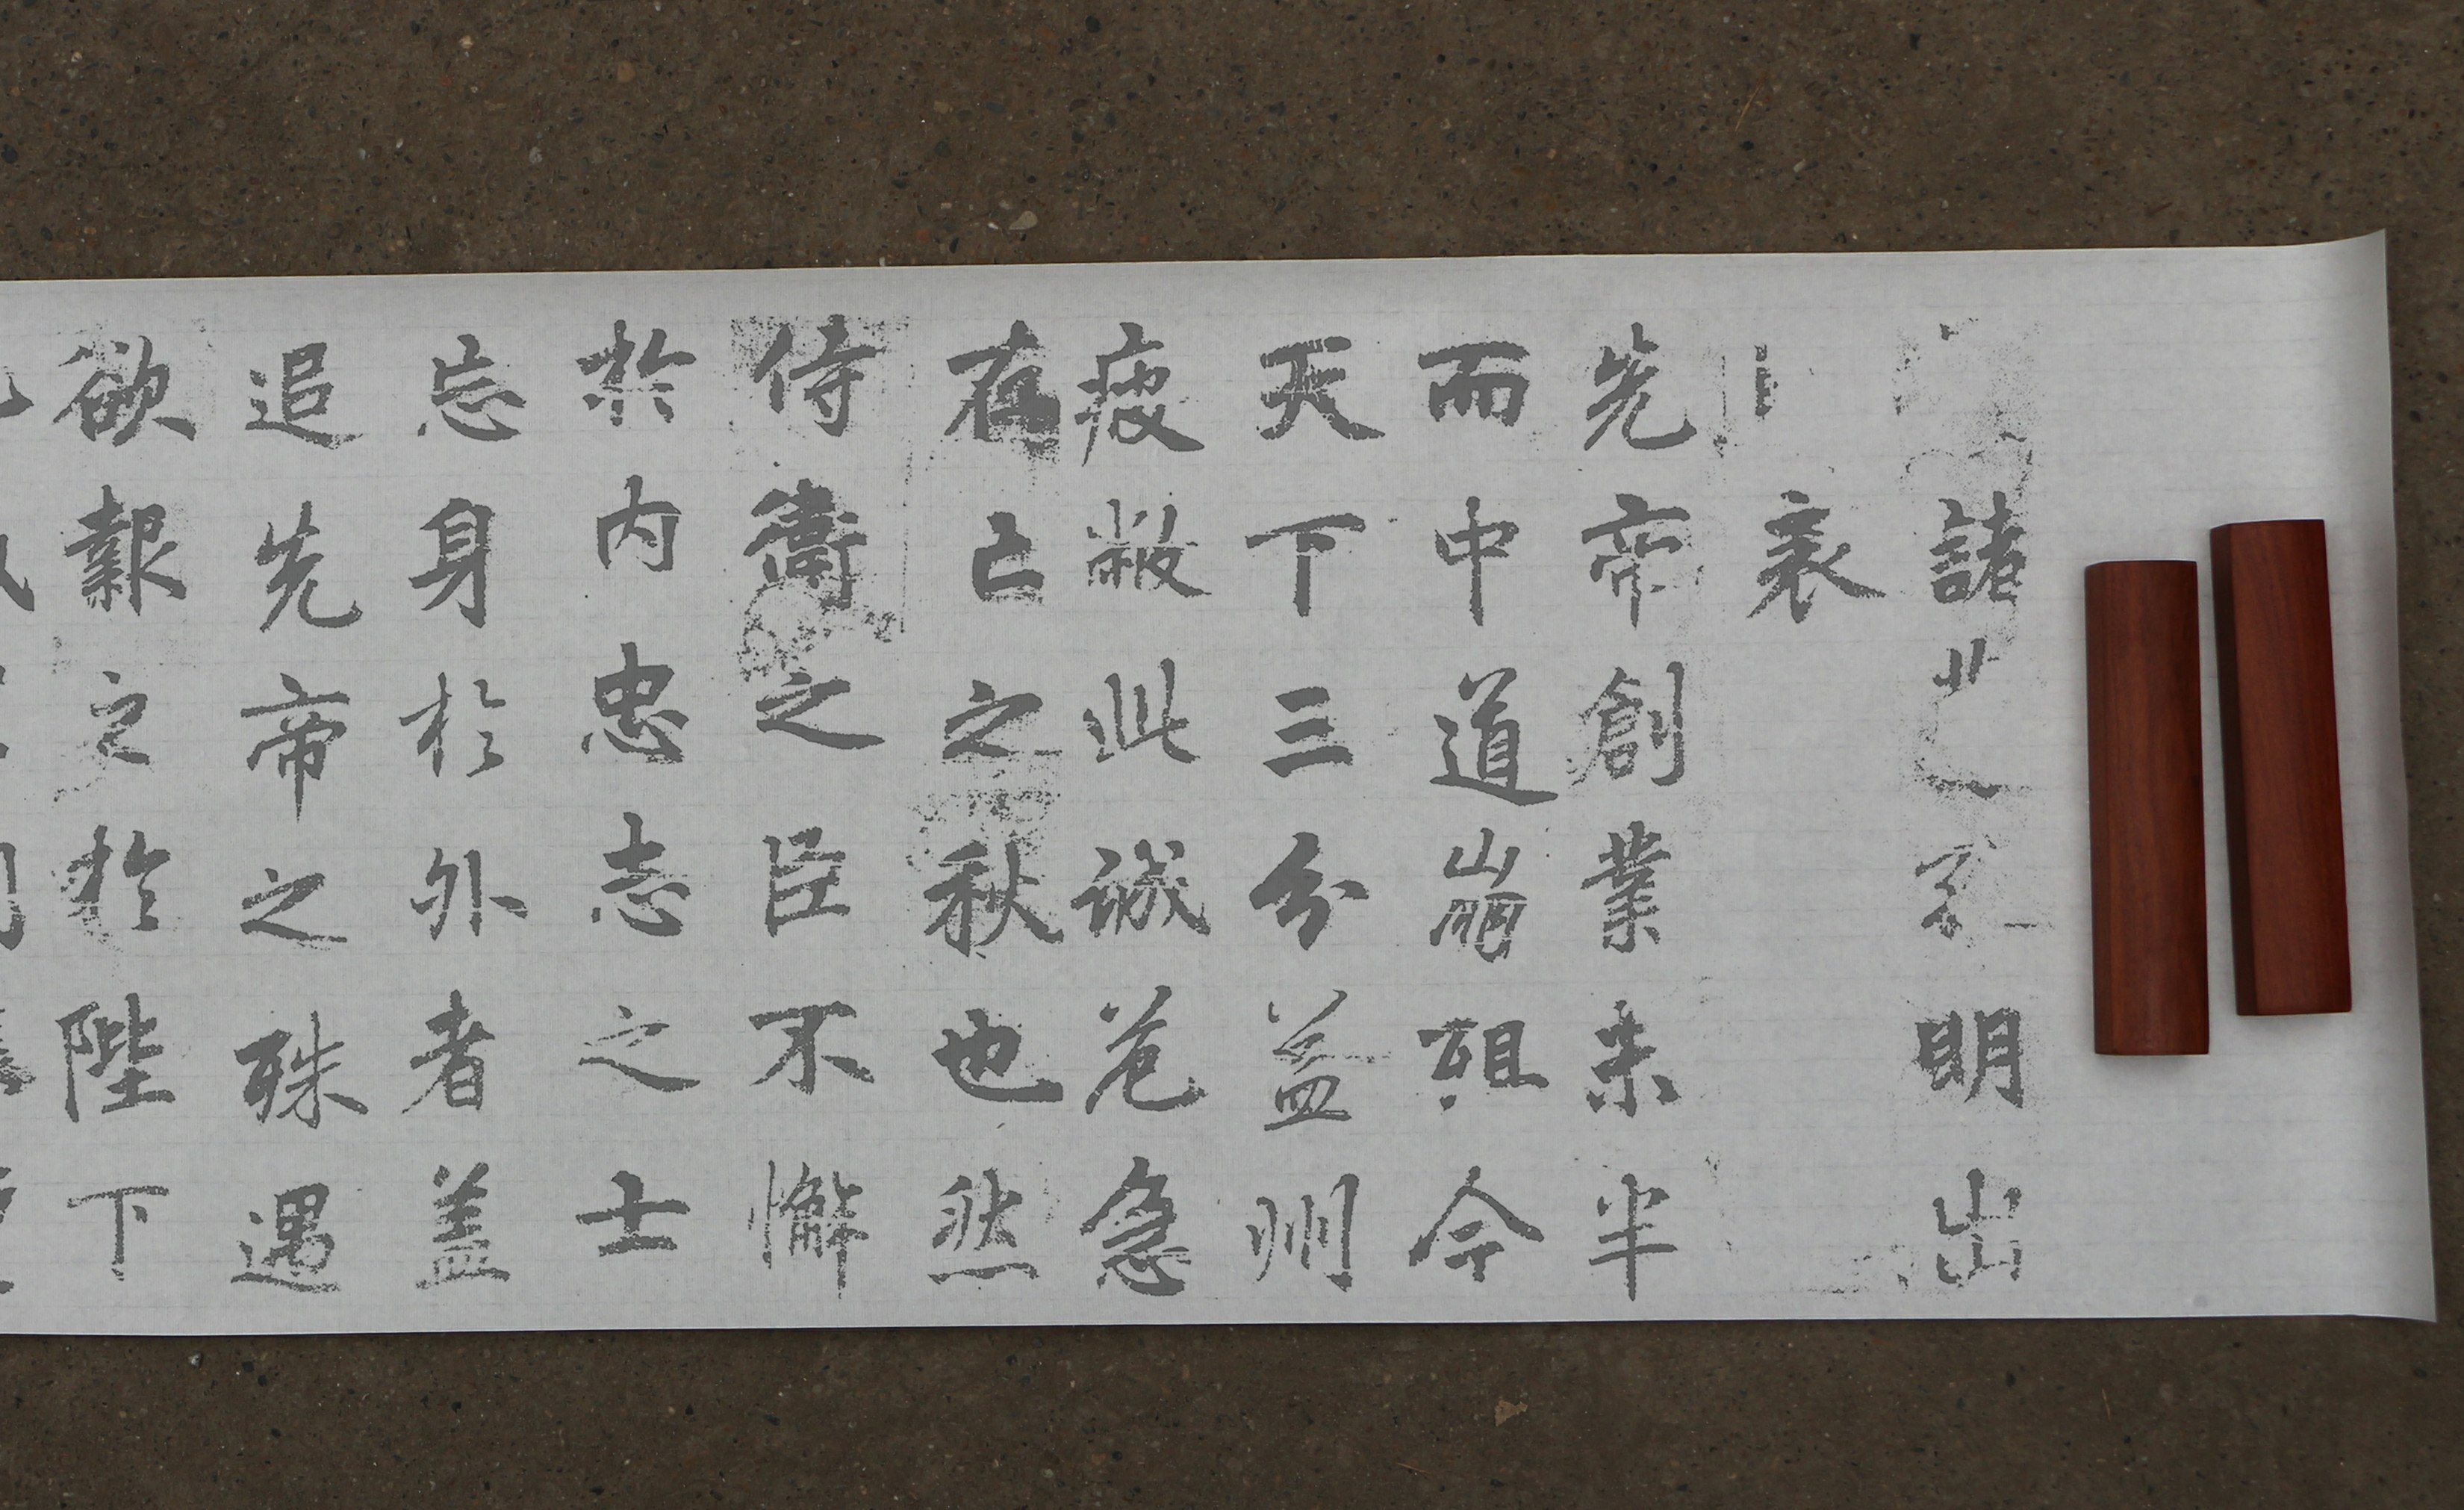 諸明出
表
先帝創業未半
而中道崩殂今
天下三分益州
疲敝此誠危急
存亡之秋也然
侍衞之臣不懈
於内忠志之士
忘身於外者盖
追先帝之殊遇
欲報之於陛下